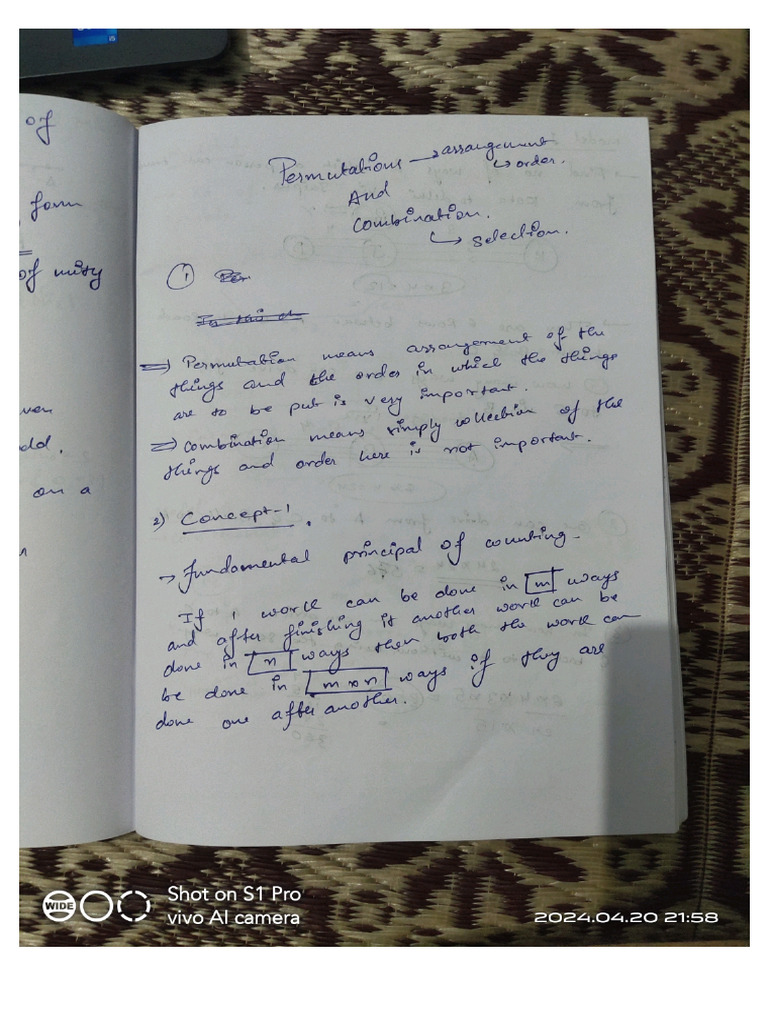 of
form
of mity
ven
dd.
on a
Permutations → arrangement
↳ order.
And
Combination.
↳ selection.
1
⇒ Permutation means arrangement of the
things and the order in which the things
are to be put is very important.
⇒ Combination means simply collection of the
things and order here is not important.
2) Concept-1.
→ Fundamental principal of counting-
If 1 work can be done in m ways
and after finishing it another work can be
done in n ways then both the work can
be done in m×n ways if they are
done one after another.
WIDE
Shot on S1 Pro
vivo AI camera
2024.04.20 21:58